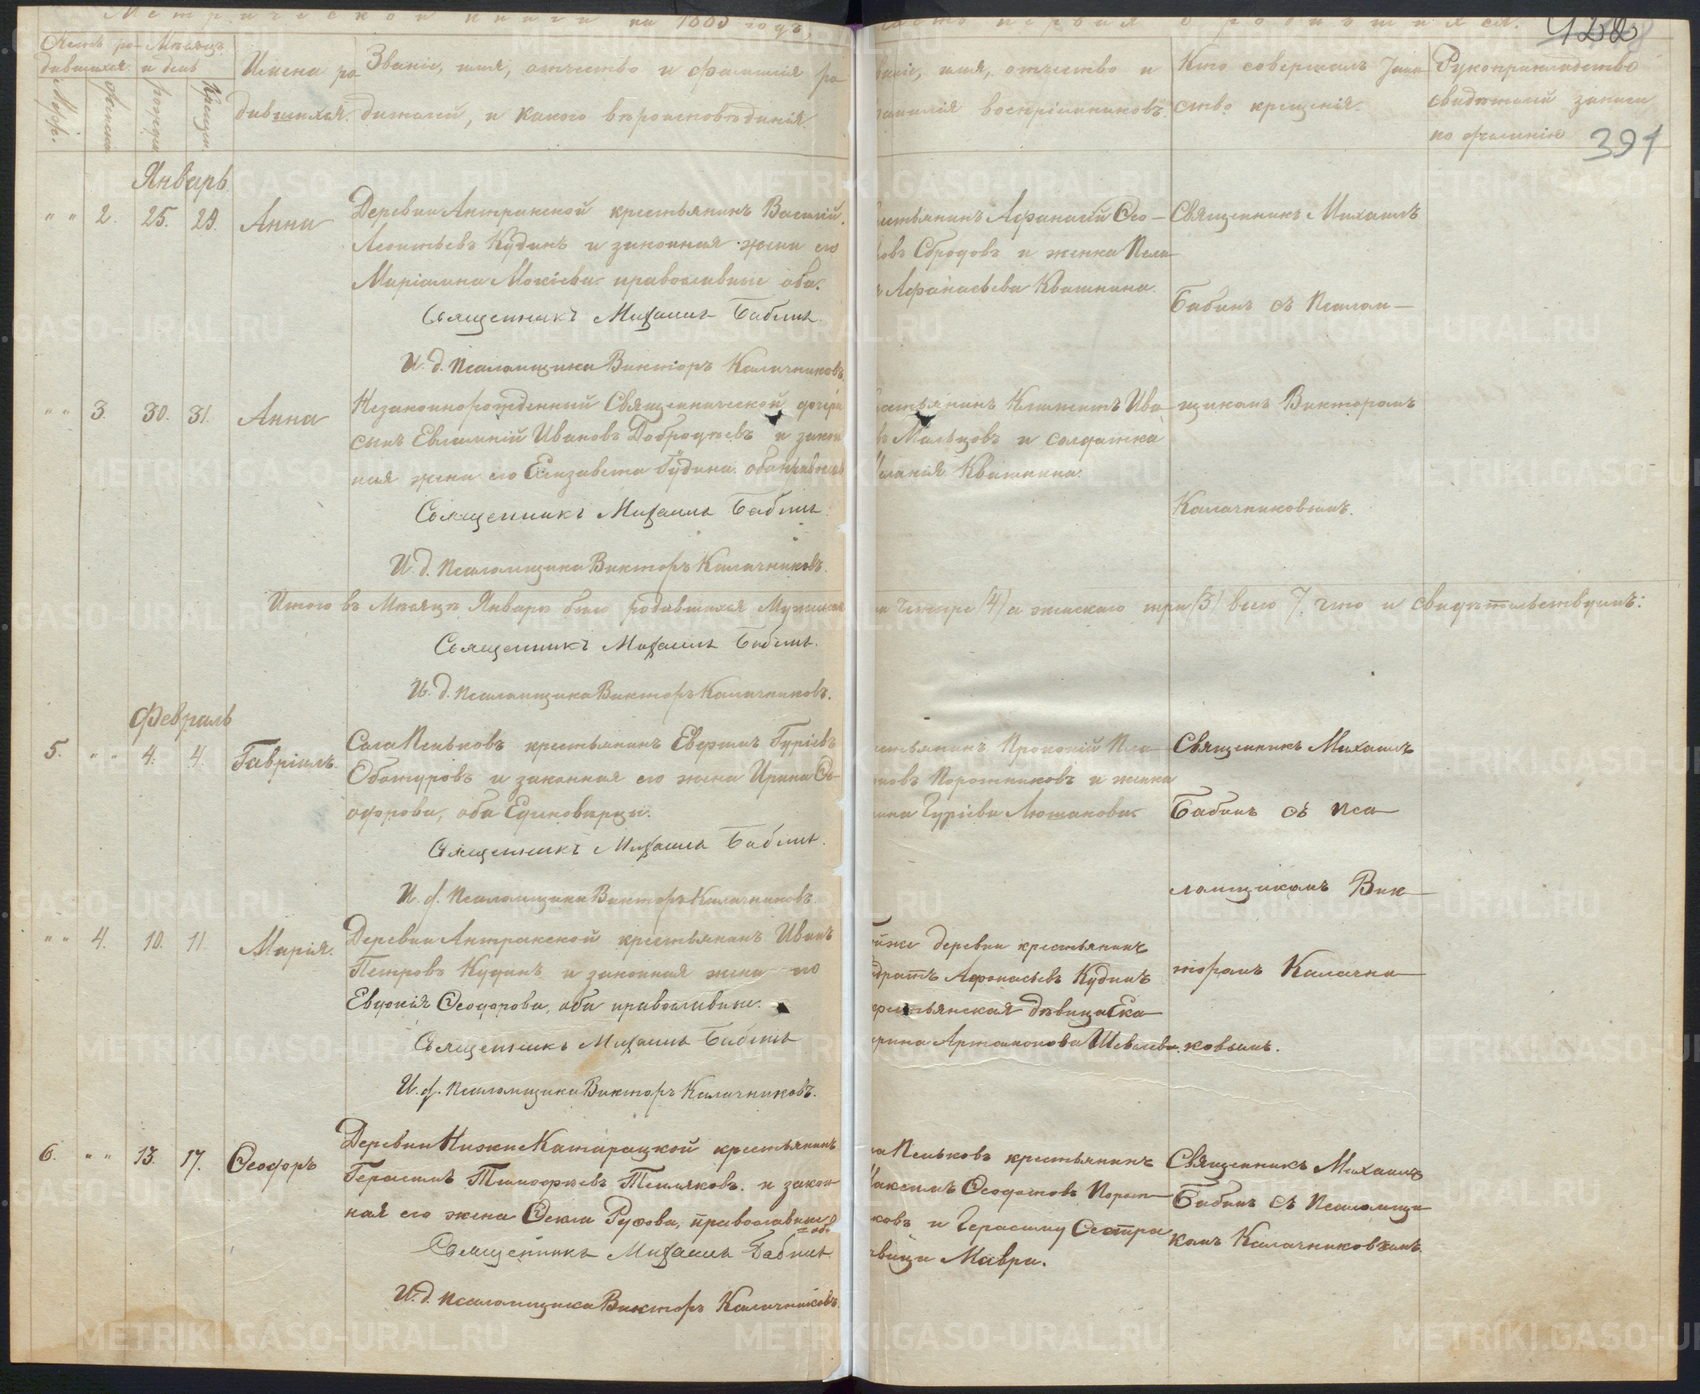 Метрической книги на 18 годъ,
часть первая о родившихся.
391
Счетъ ро-
дившихся.
Мѣсяцъ
и день
Муж.
Женска
рожден
Крещен
Имена ро
дившихся.
Званіе, имя, отчество и фамилія ро
дителей, и какого вѣроисповѣданія.
имя, отчество и
фамилія воспріемниковъ
Кто совершалъ Таин
ство крещенія.
Рукоприкладство
свидѣтелей записи
по желанію
Январь
" " 2. 25. 29. Анна
Деревни Антракской крестьянинъ Василій
Леонтьевъ Кудинъ и законная жена его
Маріамна Мокіева православные оба.
Священникъ Михаилъ Бабинъ.
И. д. псаломщика Викторъ Калачниковъ
Аѳанасій Ѳео-
овъ Сбродовъ и женка Пела
Аѳанасьева Квашнина.
Священникъ Михаилъ
Бабинъ съ Псалом-
" " 3. 30. 31. Анна
Незаконнорожденный Священнической дочери
сынъ Евлампій Ивановъ Добродѣевъ и закон
ная жена его Елизавета Гудина. оба православ
Священникъ Михаилъ Бабинъ.
И. д. псаломщика Викторъ Калачниковъ.
Климентъ Ива
Мальцовъ и солдатка
Квашнина.
щикомъ Викторомъ
Калачниковымъ.
Итого въ Мѣсяцѣ Январѣ было родившихся Мужескаго
четыре (4) а женскаго три (3) всего 7. что и свидѣтельствуемъ:
Священникъ Михаилъ Бабинъ.
И. д. псаломщика Викторъ Калачниковъ.
Февраль
5. " " 4. 4. Гавріилъ.
Села Пеньковъ крестьянинъ Евфимъ Гуріевъ
Обожуровъ и законная его жена Ирина Ѳе-
одорова, оба Единоверцы.
Священникъ Михаилъ Бабинъ.
И. д. Псаломщика Викторъ Калачниковъ.
Прокопій
Порожниковъ и женка
Гуріева Лошакова
Священникъ Михаилъ
Бабинъ съ пса-
ломщикомъ Вик-
" " 4. 10. 11. Марія.
Деревни Антракской крестьянинъ Иванъ
Петровъ Кудинъ и законная жена его
Евдокія Ѳеодорова, оба православные.
Священникъ Михаилъ Бабинъ
И. д. Псаломщика Викторъ Калачниковъ.
деревни крестьянинъ
Аѳонасьевъ Кудинъ
дѣвица Ека
рина Артамонова Шевелева.
торомъ Калачни-
ковымъ.
6. " " 13. 17. Ѳеодоръ
Деревни Нижне Катарацкой крестьянинъ
Герасимъ Тимофѣевъ Тепляковъ. и закон-
ная его жена Ѳекла Руфова, православные
оба
Священникъ Михаилъ Бабинъ
И. д. псаломщика Викторъ Калачниковъ.
Пеньковъ крестьянинъ
Максимъ Ѳедотовъ Порож-
ковъ и Герасиму Сестра
Мавра.
Священникъ Михаилъ
Бабинъ съ Псаломщи-
комъ Калачниковымъ
METRIKI.GASO-URAL.RU